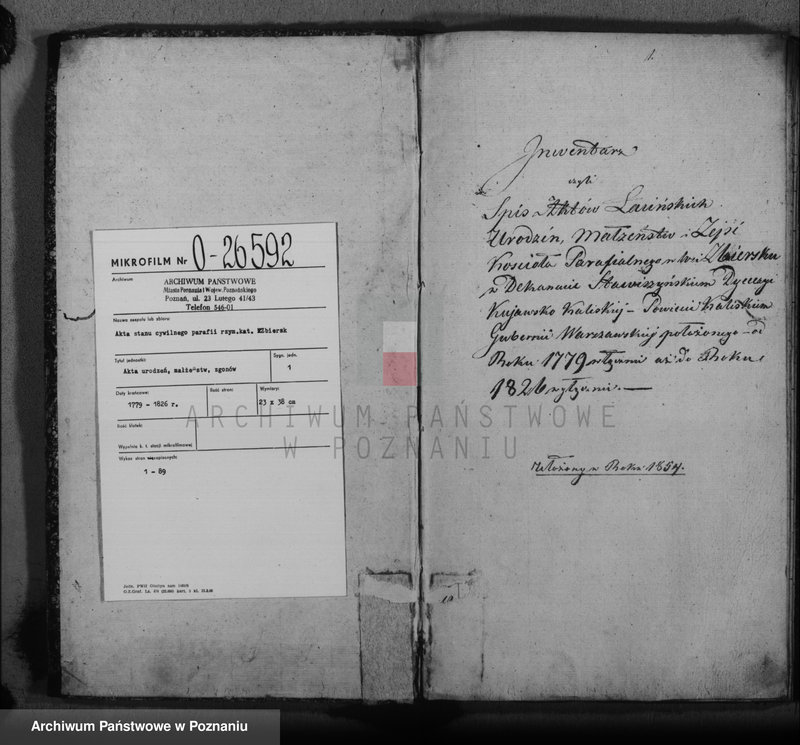 MIKROFILM Nr O-26592
Archiwum
ARCHIWUM PAŃSTWOWE
Miasta Poznania i Wojew. Poznańskiego
Poznań, ul. 23 Lutego 41/43
Telefon 546-01
Nazwa zespołu lub zbioru:
Akta stanu cywilnego parafii rzym.kat. Zbiersk
Tytuł jednostki:
Akta urodzeń, małżeństw, zgonów
Sygn. jedn.
1
Daty krańcowe:
1779 - 1826 r.
Ilość stron:
Wymiary:
23 x 38 cm
Ilość klatek:
Wypełnia k. t. stacji mikrofilmowej
Wykaz stron niezapisanych:
1 - 89
1.
Inwentarz
czyli
Spis Aktów Łacińskich
Urodzin, Małżeństw i Zejść
Kościoła Parafialnego w wsi Zbiersku
w Dekanacie Stawiszyńskim Dyecezyi
Kujawsko Kaliskiej - Powiecie Kaliskim
Gubernii Warszawskiej położonego - od
Roku 1779 włącznie aż do Roku
1826 włącznie. —
Założony w Roku 1857.
ARCHIWUM PAŃSTWOWE
W POZNANIU
Archiwum Państwowe w Poznaniu